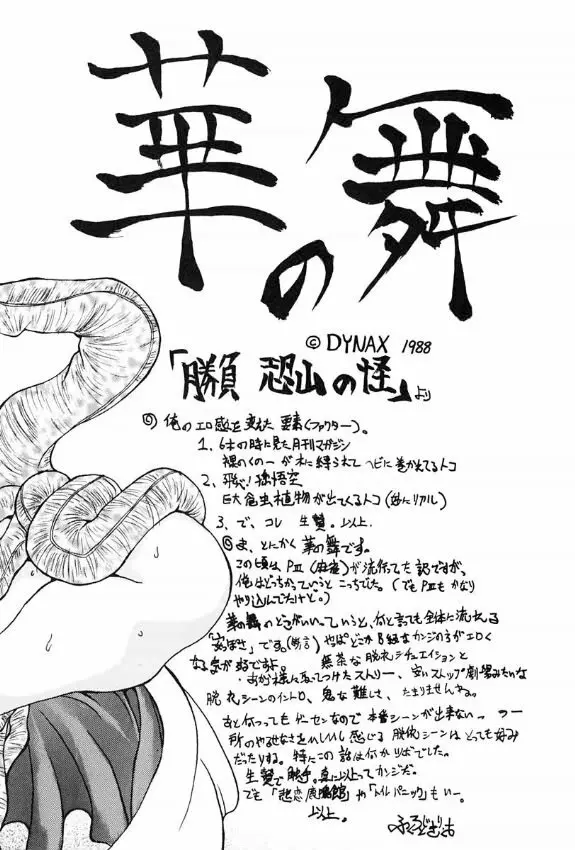 華の舞
© DYNAX 1988
「勝負 恐山の怪」より
◎俺のエロ感を変えた要素(ファクター)。
1、6才の時に見た月刊マガジン
裸のくの一が木に縛られてヘビに巻かれてるトコ
2、飛べ!孫悟空
巨大食虫植物が出てくるトコ(妙にリアル)
3、で、コレ 生贄。以上。
◎ま、とにかく華の舞です。
この頃はPⅢ(麻雀)が流行ってた訳ですが、
俺はどっちかっていうとこっちでした。(でもPⅢもかなり
やり込んでたけど。)
華の舞のどこがいいっていうと、何と言っても全体に流れる
です。(断言)やっぱどこかB級なカンジの方がエロく
なる気が好ですよ。 無茶な脱衣シチュエイションと
お客様に取ってつけたストリー、安いストリップ劇場みたいな
脱衣シーンのイントロ、鬼な難しさ、たまりませんなぁ。
あと何つってもゲーセンなので本番シーンが出来ないっつー
所のやるせなさをひしひし感じる脱衣シーンはとっても好み
だったりする。特にこの話は何かりばでした。
生贄で触手。真に以上ってカンジだ。
でも「悲恋 館」や「トイレパニック」もいー。
以上。
ふくろどぎりお